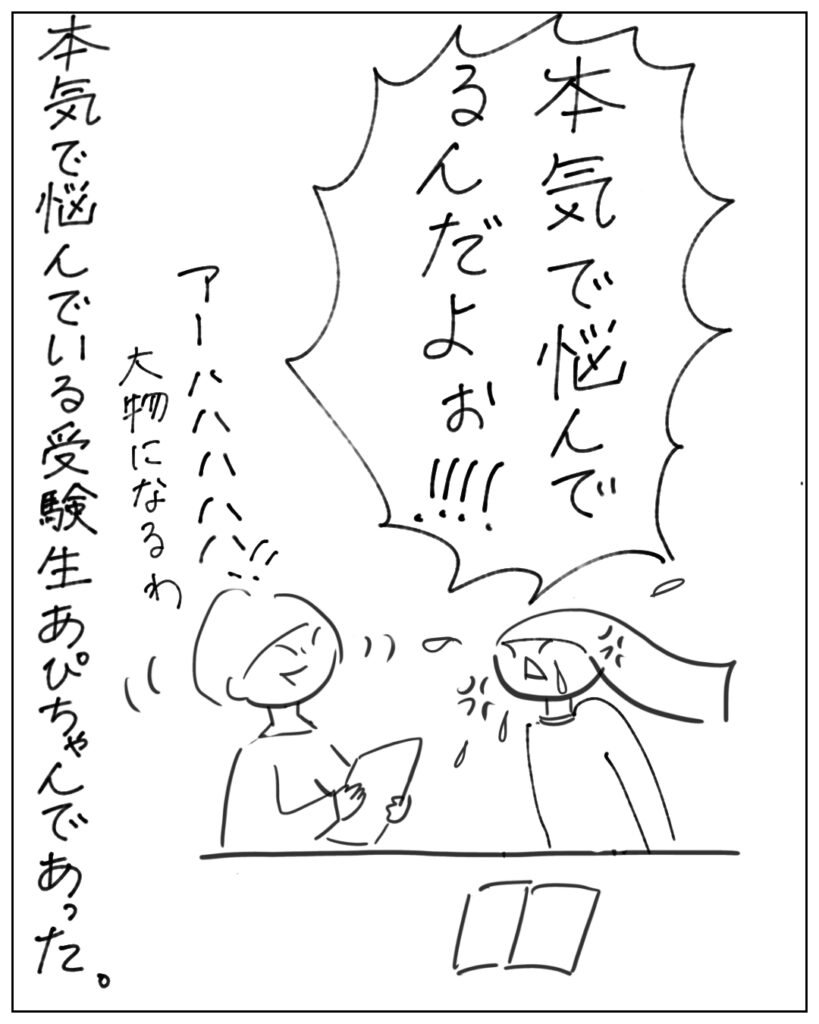 本気で悩んで
るんだよぉ!!!!
アーハハハハハ!!
大物になるわ
本気で悩んでいる受験生あぴちゃんであった。